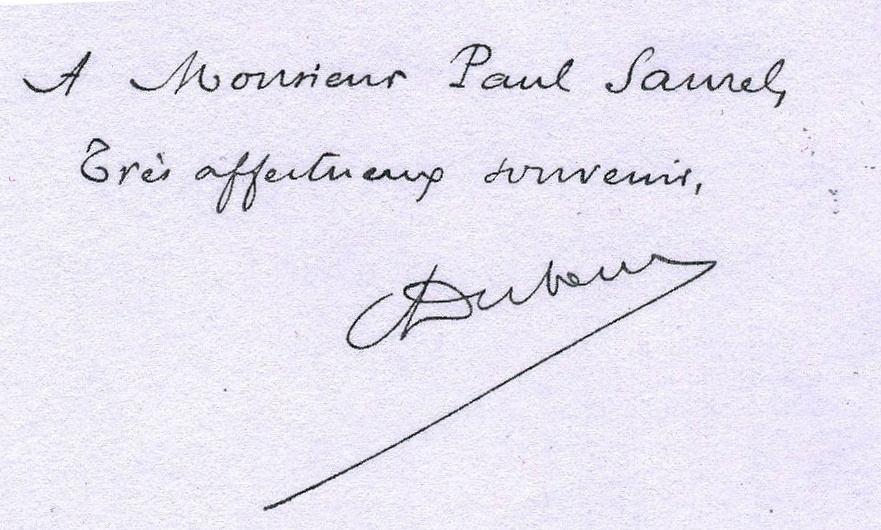 A Monsieur Paul Saurel,
Très affectueux souvenir,